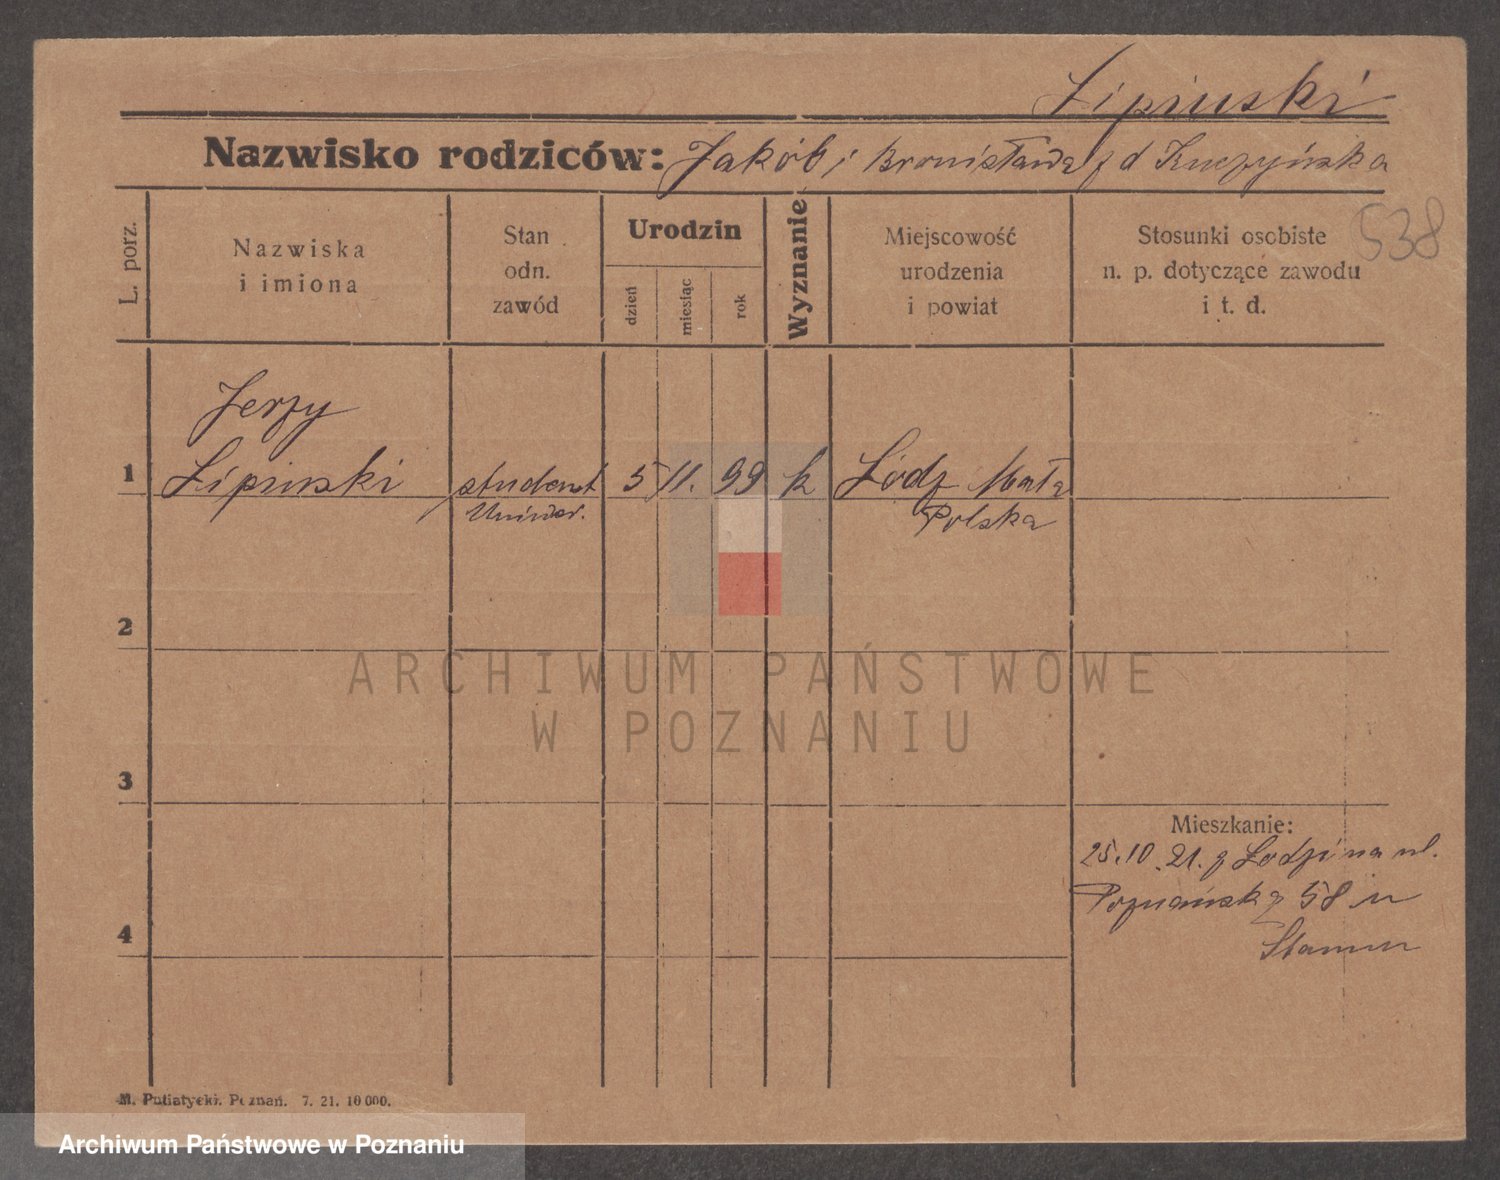 Lipinski
Nazwisko rodziców: Jakób i Bronisława z d Kuczyńska
538
L. porz.
Nazwiska
i imiona
Stan
odn.
zawód
Urodzin
dzień
miesiąc
rok
Wyznanie
Miejscowość
urodzenia
i powiat
Stosunki osobiste
n. p. dotyczące zawodu
i t. d.
Jerzy
1 Lipinski student 5 11. 99 k Łódz Mała
Uniwer. Polska
2
ARCHIWUM PAŃSTWOWE
W POZNANIU
3
Mieszkanie:
25.10.21. z Łodzi na ul.
Poznańską 58 u
4
Stamm
M. Putiatycki. Poznań. 7. 21. 10 000.
Archiwum Państwowe w Poznaniu